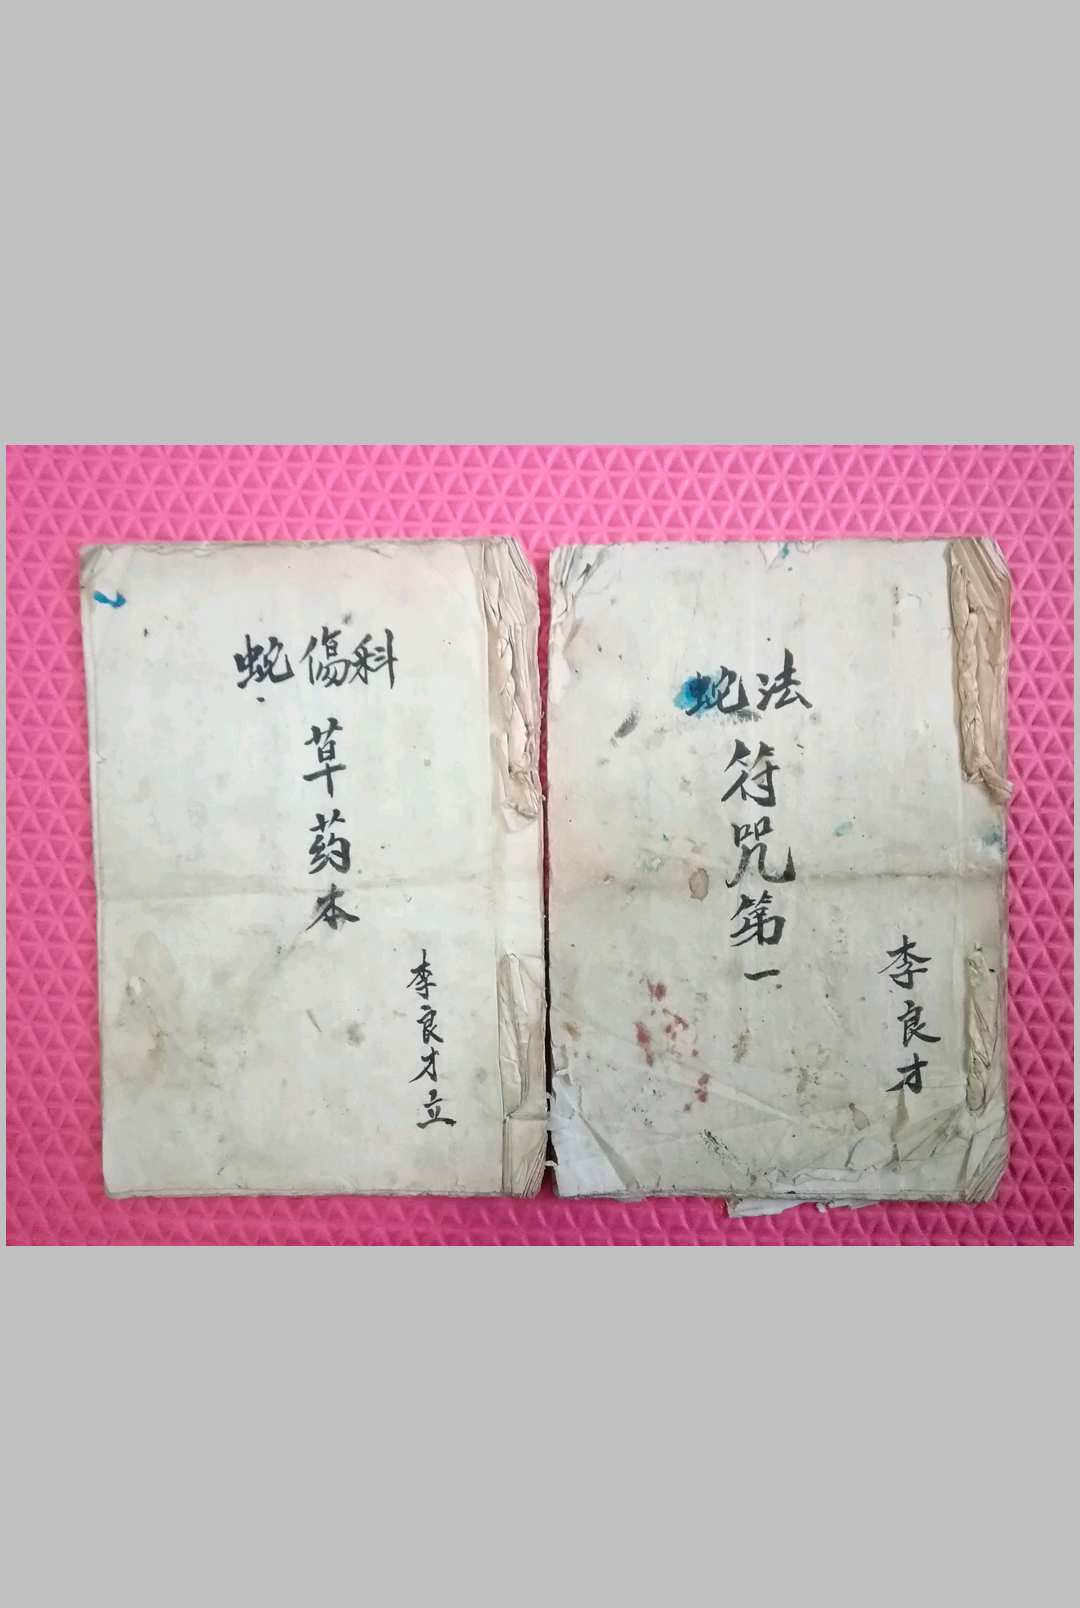 蛇傷科
草药本
李良才立
蛇法
符咒第一
李良才